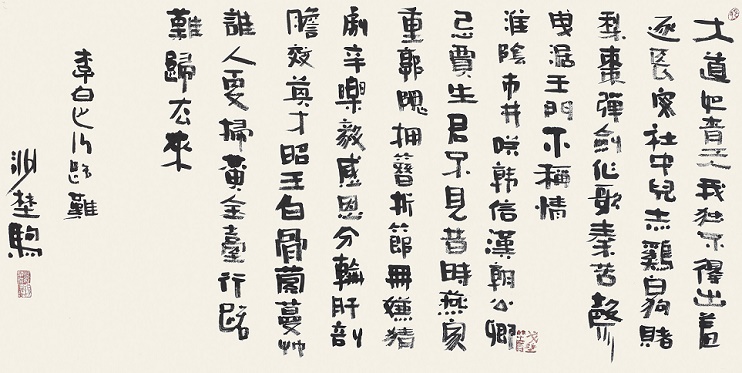 大道如青天我獨不得出羞
逐長安社中兒赤雞白狗賭
梨棗彈劍作歌奏苦聲
曳裾王門不稱情
淮陰市井咲韓信漢朝公卿
忌賈生君不見昔時燕家
重郭隗拥簪折節無嫌猜
劇辛樂毅感恩分輸肝剖
膽效英才昭王白骨縈蔓艸
誰人更掃黃金臺行路
難歸去來
李白之行路難
埜駒